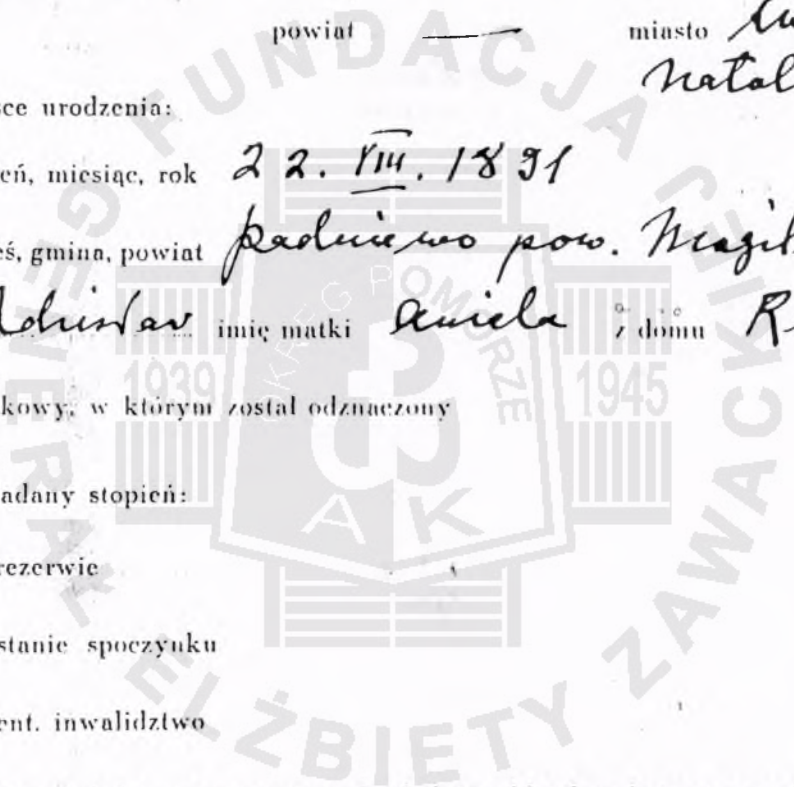 powiat — miasto
Natal
ce urodzenia:
eń, miesiąc, rok 22. VIII. 1891
eś, gmina, powiat Padniewo pow. Mogil
imię matki Aniela z domu R
kowy, w którym został odznaczony
adany stopień:
rezerwie
stanie spoczynku
ent. inwalidztwo
FUNDACJA GENERAŁ ELŻBIETY ZAWACKIEJ
OKRĘG POMORZE
1939 1945
AK